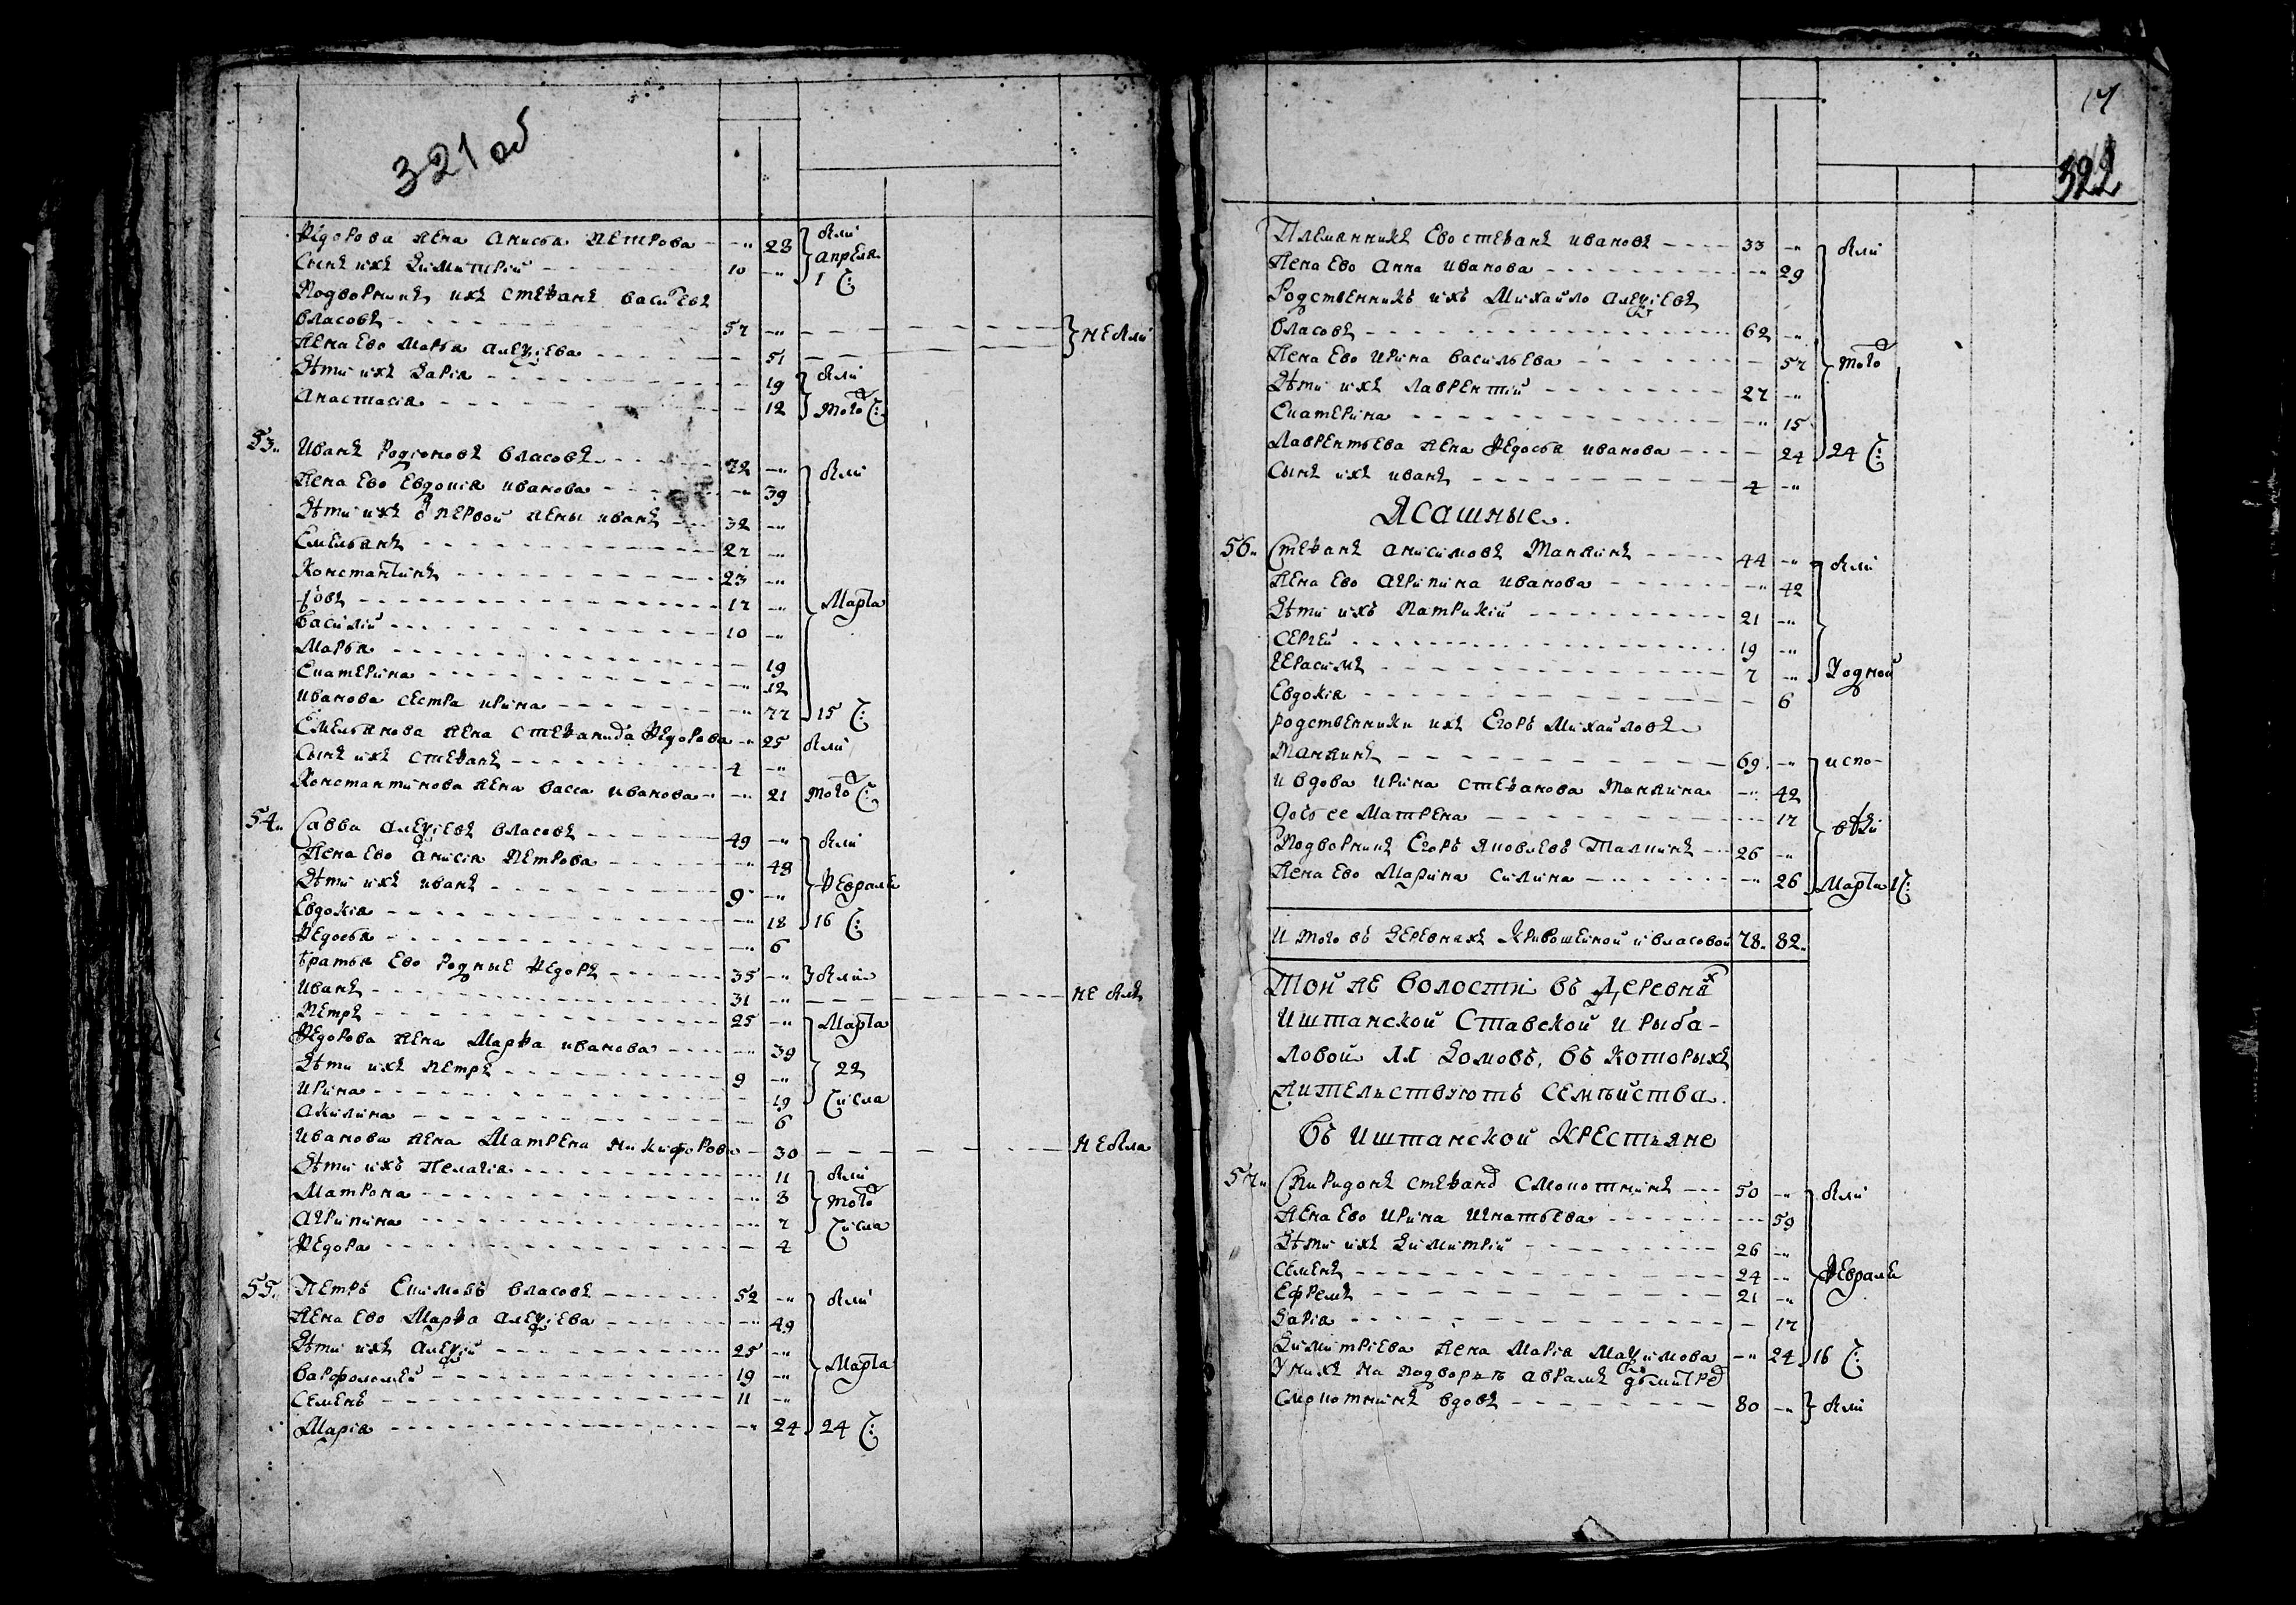 321 об
Федорова жена Анисья Петрова - - " 28 были
Сынъ ихъ Димитрий - - 10 - " апреля
1 ч:
Подворникъ ихъ Стефанъ Васильевъ
Власовъ - - 57 - "
Жена ево Марья Алексіева - - 51 небыли
Дѣти ихъ Дарія - - 19 были
Анастасія - - 12 того ч:
53. Иванъ Родіоновъ Власовъ - - 72 - " были
Жена ево Евдокия Иванова - - " 39
Дѣти ихъ о первой жены Иванъ - - 32 - "
Емельянъ - - 27 - "
Константинъ - - 23 - "
Іовъ - - 17 - " Марта
Василій - - 10 - "
Марья - - 19
Екатерина - - " 12
Иванова сестра Ирина - - " 77 15 ч:
Емельянова жена Стефанида Федорова - " 25 были
Сынъ ихъ Стефанъ - - 4 - "
Константинова жена Васса Иванова - - " 21 того ч:
54. Савва Алексіевъ Власовъ - - 49 - " были
Жена ево Анисія Петрова - - " 48
Дѣти ихъ Иванъ - - 9 - " Февраля
Евдокія - - " 18 16 ч:
Федосья - - " 6
Братья ево родные Федоръ - - 35 - " были
Иванъ - - 31 - " не былъ
Петръ - - 25 - " Марта
Федорова жена Марфа Иванова - - " 39
Дѣти ихъ Петръ - - 9 - " 22
Ирина - - 19 числа
Акилина - - 6
Иванова жена Матрена Никифорова - 30 небыла
Дѣти ихъ Пелагія - - 11 были
Матрона - - " 8 того
Агрипина - - 7 числа
Федора - - 4
55. Петръ Екимовъ Власовъ - - 52 - " были
Жена ево Марфа Алексіева - - " 49
Дѣти ихъ Алексій - - 25 - "
Варфоломей - - 19 - " Марта
Семенъ - - 11 - "
Марія - - " 24 24 ч:
17
322
Племянникъ ево Стефанъ Ивановъ - - 33 - " были
Жена ево Анна Иванова - - " 29
Родственникъ ихъ Михайло Алексіевъ
Власовъ - - 62 - "
Жена ево Ирина Васильева - - 57 того
Дѣти ихъ Лаврентій - - 27 - "
Екатерина - - " 15
Лаврентьева жена Федосья Иванова - - 24 24 ч:
Сынъ ихъ Иванъ - - 4 - "
Ясашные.
56. Стефанъ Анисимовъ Танжинъ - - 44 - " были
Жена ево Агрипина Иванова - - " 42
Дѣти ихъ Патрикій - - 21 - "
Сергей - - 19 - "
Герасимъ - - 7 - " У одной
Евдокія - - 6
Родственники ихъ Егоръ Михайловъ
Танжинъ - - 69 - " испо-
И вдова Ирина Стефанова Танжина - " 42
дочь ее Матрена - - 17 вѣди
Подворникъ Егоръ Яковлевъ Талкинъ - - 26 - "
Жена ево Марина Силина - - " 26 Марта 1 ч:
И того въ деревняхъ Кривошеиной и Власовой 78. 82.
Той же волости въ деревнях
Иштанской Ставской и Рыба-
ловой домовъ, въ которыхъ
жительствуютъ семейства.
Въ Иштанской крестьяне
57. Спиридонъ Стефанов Смокотнинъ - - 50 - " были
Жена ево Ирина Игнатьева - - 59
Дѣти ихъ Димитрій - - 26 - "
Семенъ - - 24 - " Февраля
Ефремъ - - 21 - "
Дарія - - 17
Димитріева жена Марія Максимова - " 24 16 ч:
У нихъ на подворьѣ Аврамъ Дмитрев
Смокотнинъ вдовъ - - 80 - " были